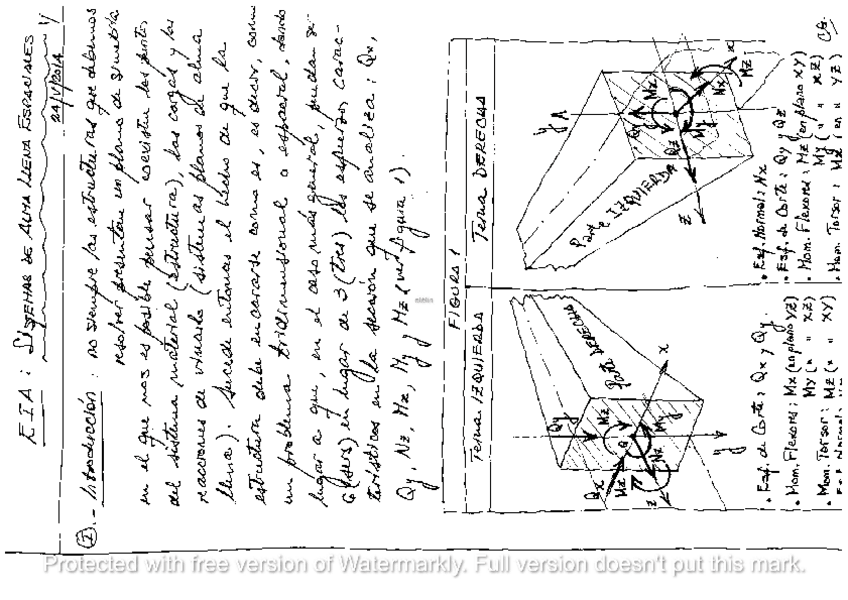 EIA: SISTEMAS DE ALMA LLENA ESPACIALES
24/V/2014
1/
I.- Introducción: no siempre las estructuras que debemos
resolver presentan un plano de simetría
en el que nos es posible pensar coexisten los puntos
del sistema material (estructura), las cargas y las
reacciones de vínculo (sistemas planos de alma
llena). Sucede entonces el hecho de que la
estructura debe encararse como es, es decir, como
un problema tridimensional o espacial, dando
lugar a que, en el caso más general, puedan ser
6 (seis) en lugar de 3 (tres) los esfuerzos carac-
terísticos en la sección que se analiza: Qx,
Qy, Nz, Mx, My y Mz (ver figura 1).
FIGURA 1
Terna IZQUIERDA
Parte DERECHA
Qy
Mz
Qx
Mx
My
Nz
x
y
z
• Esf. de Corte: Qx y Qy.
• Mom. Flexores: Mx (en plano YZ)
My (" " XZ)
• Mom. Torsor: Mz (" " XY)
Terna DERECHA
Parte IZQUIERDA
y
Qy
Mx
Qz
My
Nx
Mz
x
z
• Esf. Normal: Nx
• Esf. de Corte: Qy y Qz
• Mom. Flexores: Mz (en plano XY)
My (" " XZ)
• Mom. Torsor: Mx (en " YZ)
CG.
Protected with free version of Watermarkly. Full version doesn't put this mark.